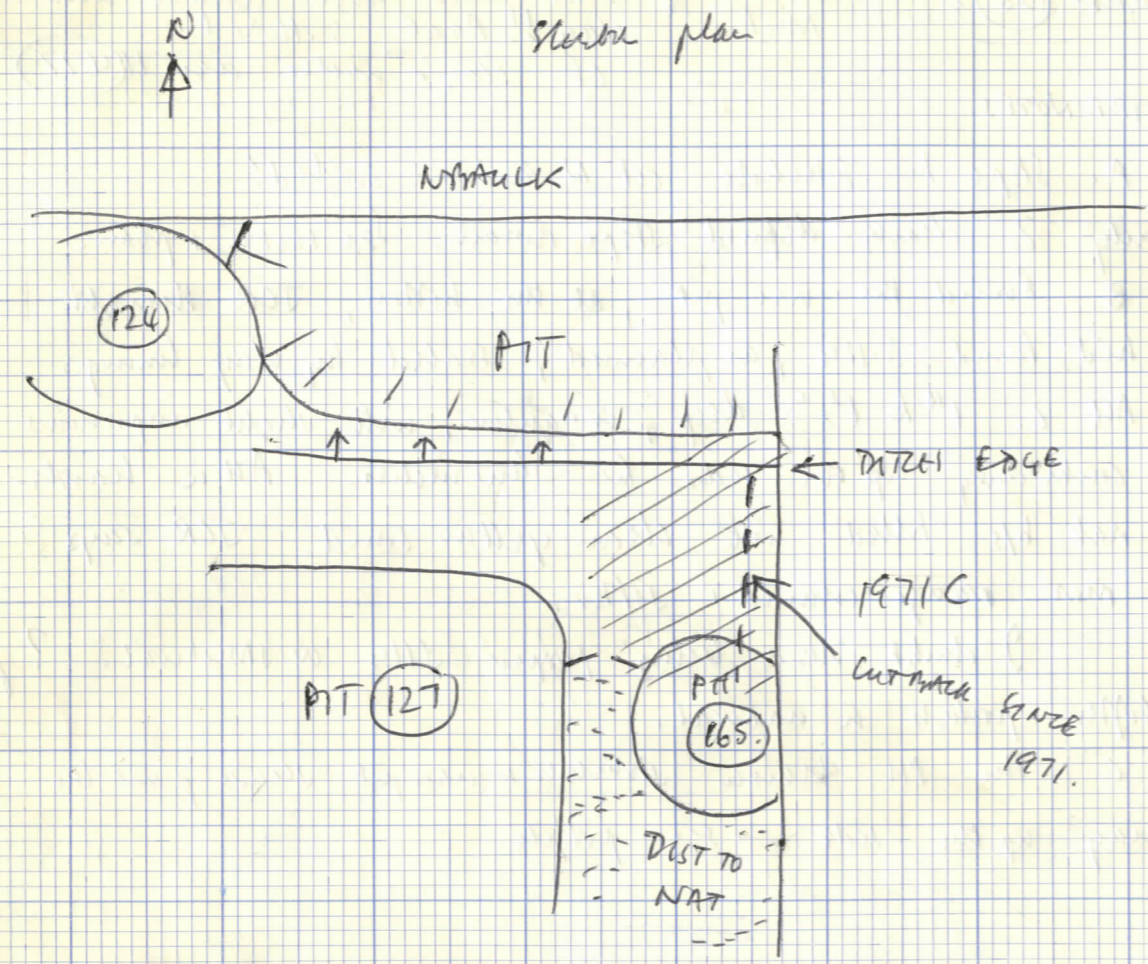 N
Sketch plan
N BAULK
124
PIT
DITCH EDGE
1971 C
CUT BACK SINCE
1971.
PIT 127
PIT
165.
DIST TO
NAT